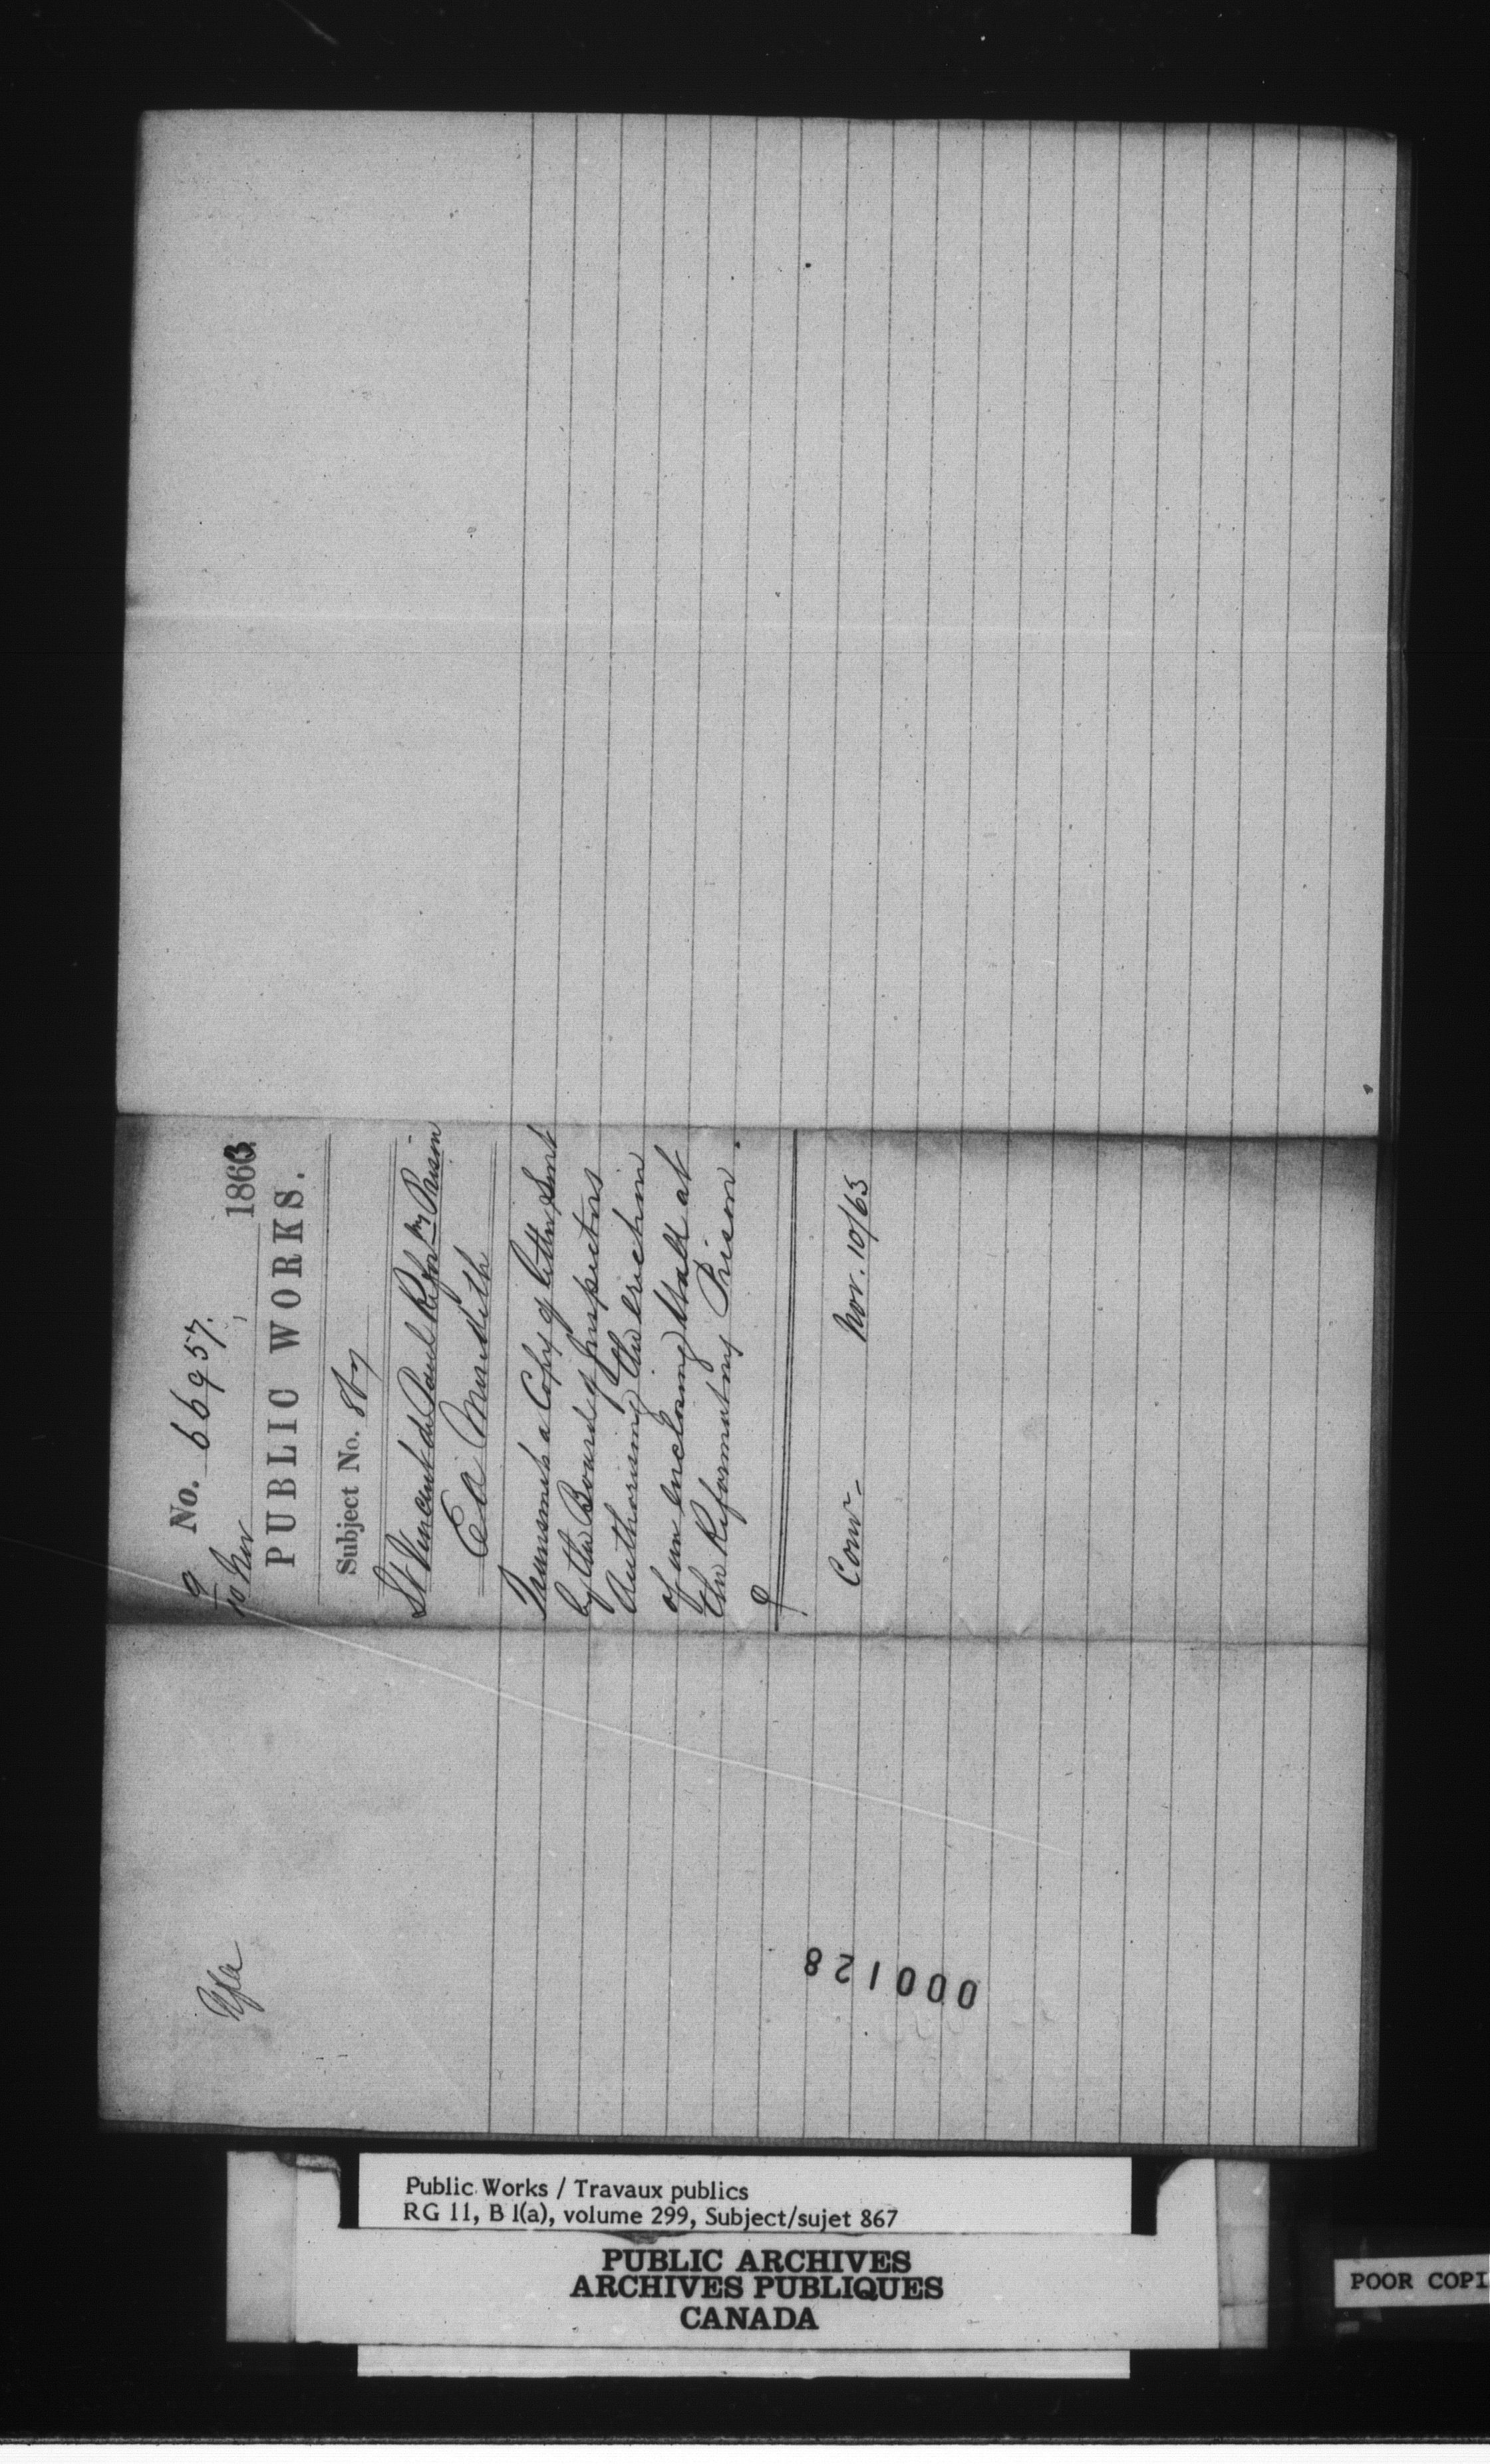 No. 66957.
9
10 Nov 1863.
PUBLIC WORKS.
Subject No. 867
St Vincent de Paul Reform ry Prison
E A Meredith
Transmits a Copy of letter sent
by the Board of Inspectors
Authorising the erection
of an enclosing Wall at
the Reformatory Prison.
Nov. 10/63
000128
Public Works / Travaux publics
RG 11, B 1(a), volume 299, Subject/sujet 867
PUBLIC ARCHIVES
ARCHIVES PUBLIQUES
CANADA
POOR COPI